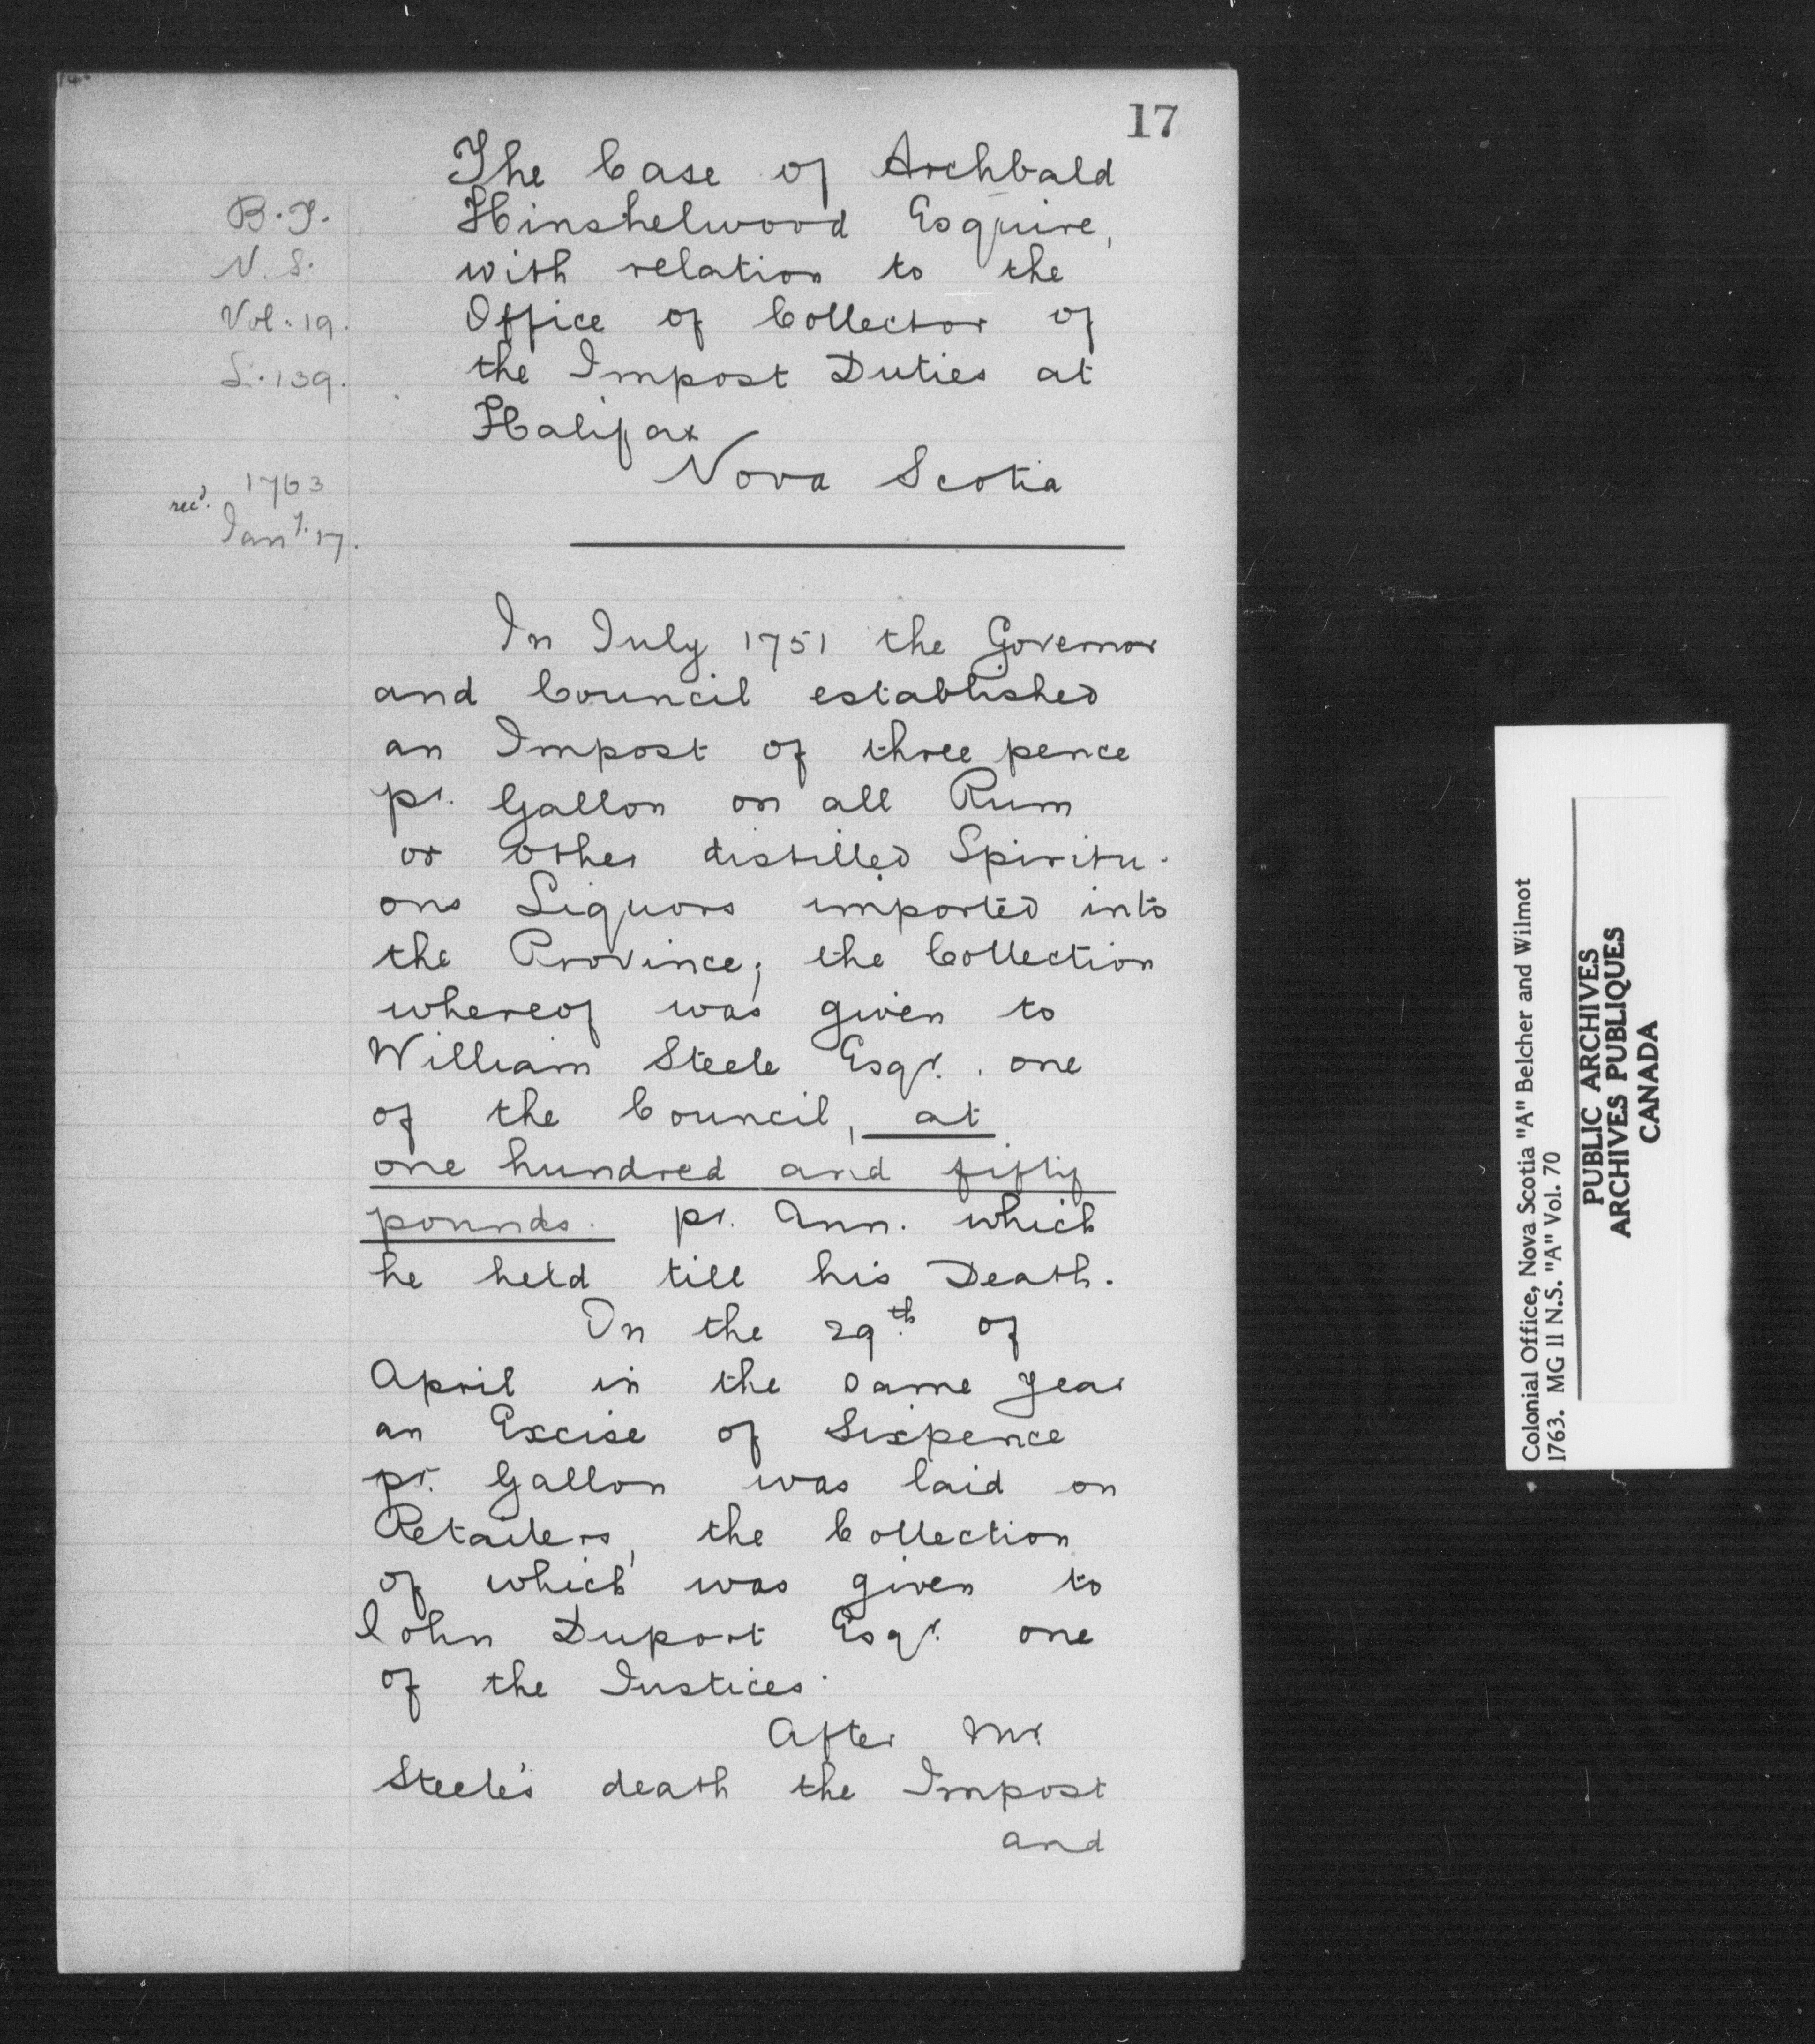 17
The Case of Archbald
Hinshelwood Esquire,
with relation to the
Office of Collector of
the Impost Duties at
Halifax
Nova Scotia
B.T.
N.S.
Vol. 19.
L. 139.
1763
rec'd.
Jany. 17.
In July 1751 the Governor
and Council established
an Impost of three pence
pr. Gallon on all Rum
or other distilled Spiritu-
ous Liquors imported into
the Province; the Collection
whereof was given to
William Steele Esqr. one
of the Council, at
one hundred and fifty
pounds. pr. Ann. which
he held till his Death.
On the 29th of
April in the same year
an Excise of Sixpence
pr. Gallon was laid on
Retailers, the Collection
of which was given to
John Duport Esqr. one
of the Justices.
After Mr.
Steele's death the Impost
and
Colonial Office, Nova Scotia "A" Belcher and Wilmot
1763. MG 11 N.S. "A" Vol. 70
PUBLIC ARCHIVES
ARCHIVES PUBLIQUES
CANADA